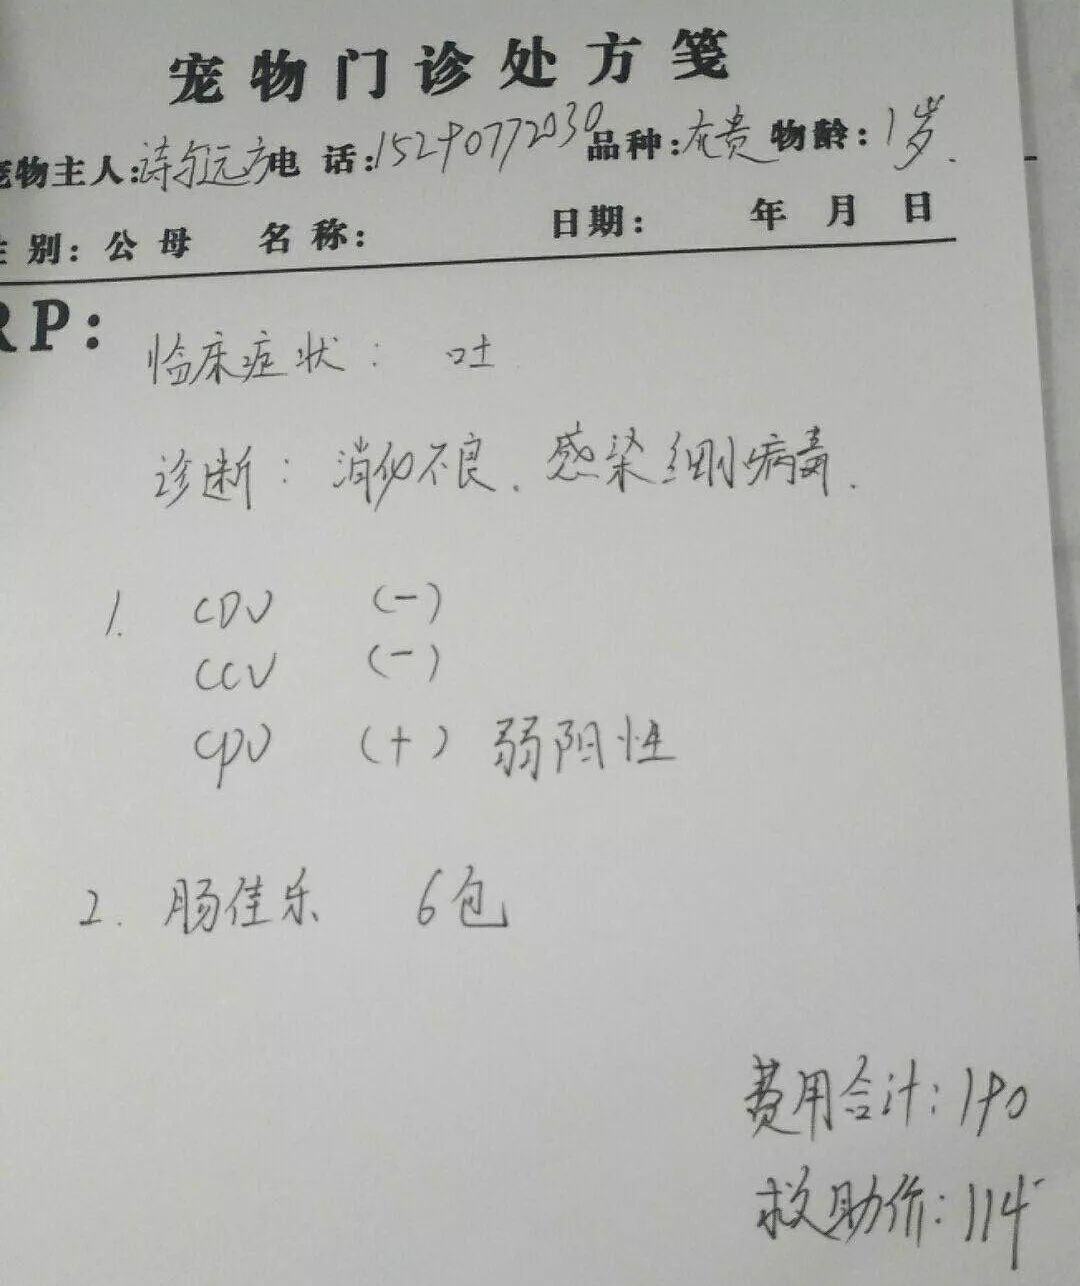 宠物门诊处方笺
宠物主人:诗和远方电 话:15290772030品种:灰贵 物龄:1岁.
性 别: 公 母 名 称: 日期: 年 月 日
RP:
临床症状: 吐.
诊断: 消化不良、感染细小病毒.
1. CDV (-)
CCV (-)
CPV (+) 弱阳性
2. 肠佳乐 6包
费用合计: 190
救助价: 114